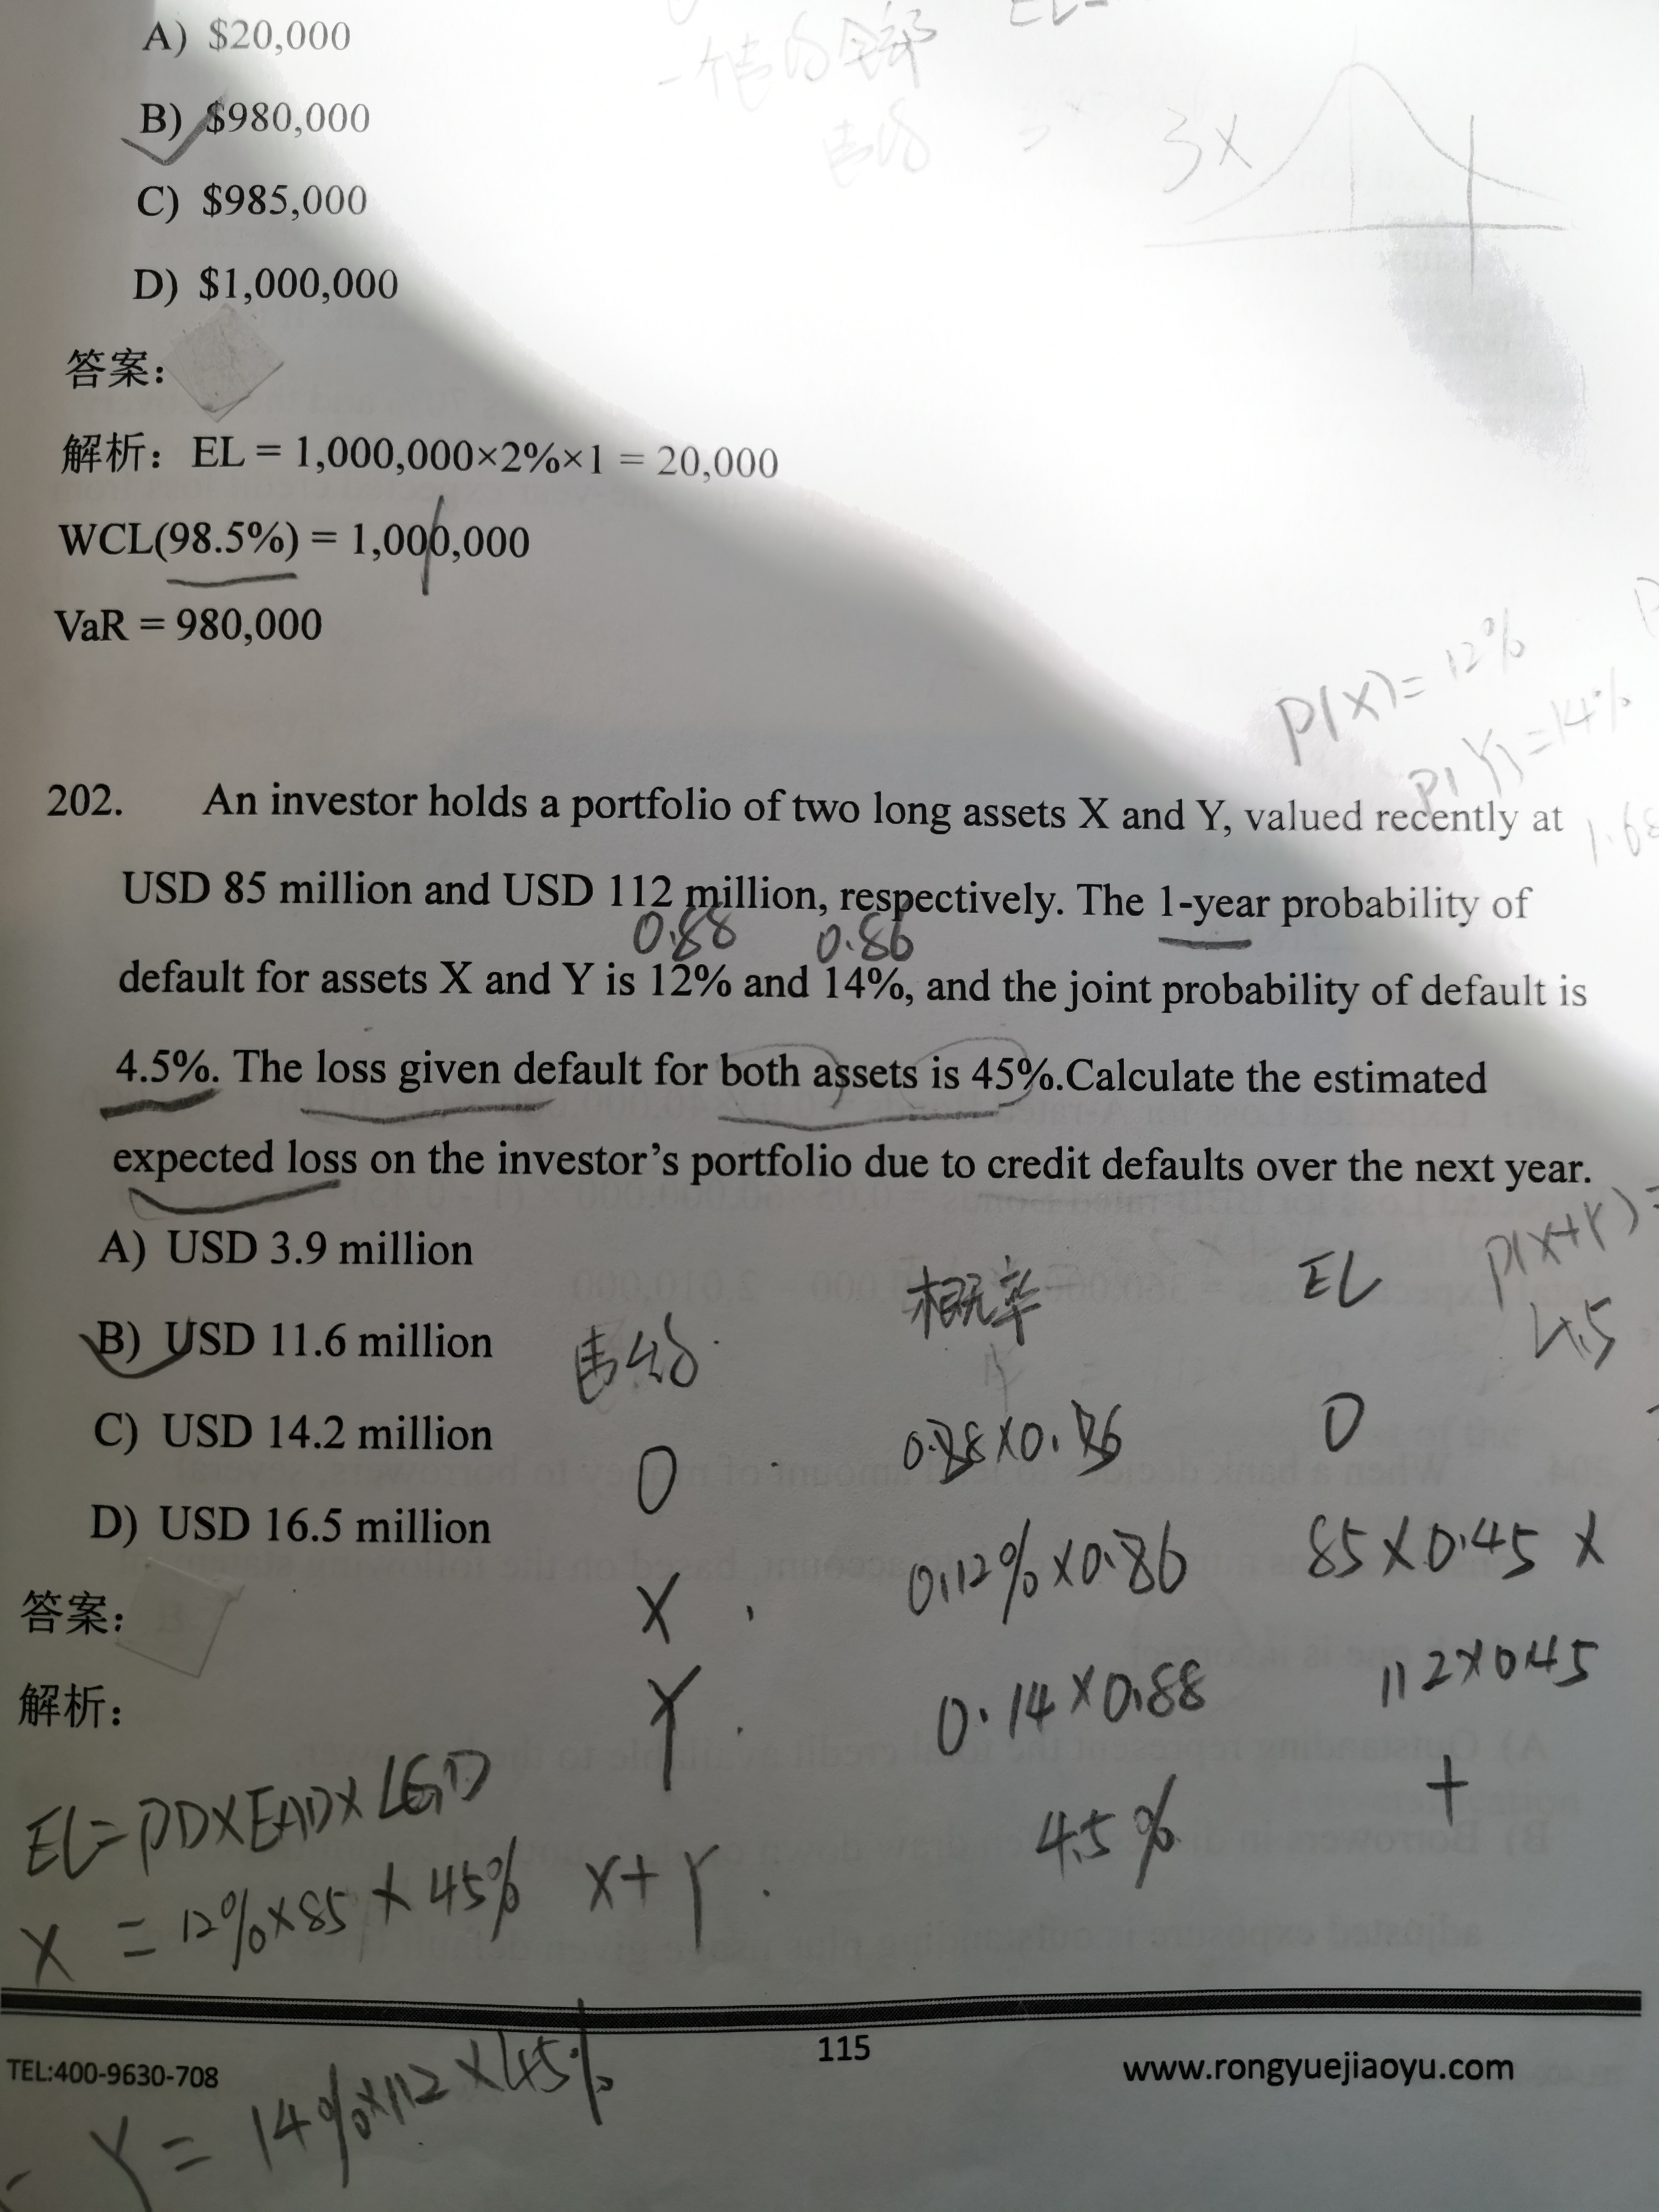 A) $20,000
一个债的全部
B) $980,000
3X
C) $985,000
D) $1,000,000
答案：
解析：EL = 1,000,000×2%×1 = 20,000
WCL(98.5%) = 1,000,000
VaR = 980,000
P(X)=12%
P(Y)=14%
202. An investor holds a portfolio of two long assets X and Y, valued recently at
USD 85 million and USD 112 million, respectively. The 1-year probability of
0.88 0.86
default for assets X and Y is 12% and 14%, and the joint probability of default is
4.5%. The loss given default for both assets is 45%.Calculate the estimated
expected loss on the investor’s portfolio due to credit defaults over the next year.
A) USD 3.9 million
概率 EL P(X+Y)=
4.5
B) USD 11.6 million
C) USD 14.2 million
0 0.88×0.86 0
D) USD 16.5 million
X 0.12%×0.86 85×0.45×
答案：
Y 0.14×0.88 112×0.45
解析：
EL=PD×EAD×LGD
X+Y 4.5% +
X = 12%×85×45%
115
TEL:400-9630-708 www.rongyuejiaoyu.com
Y = 14%×112×45%